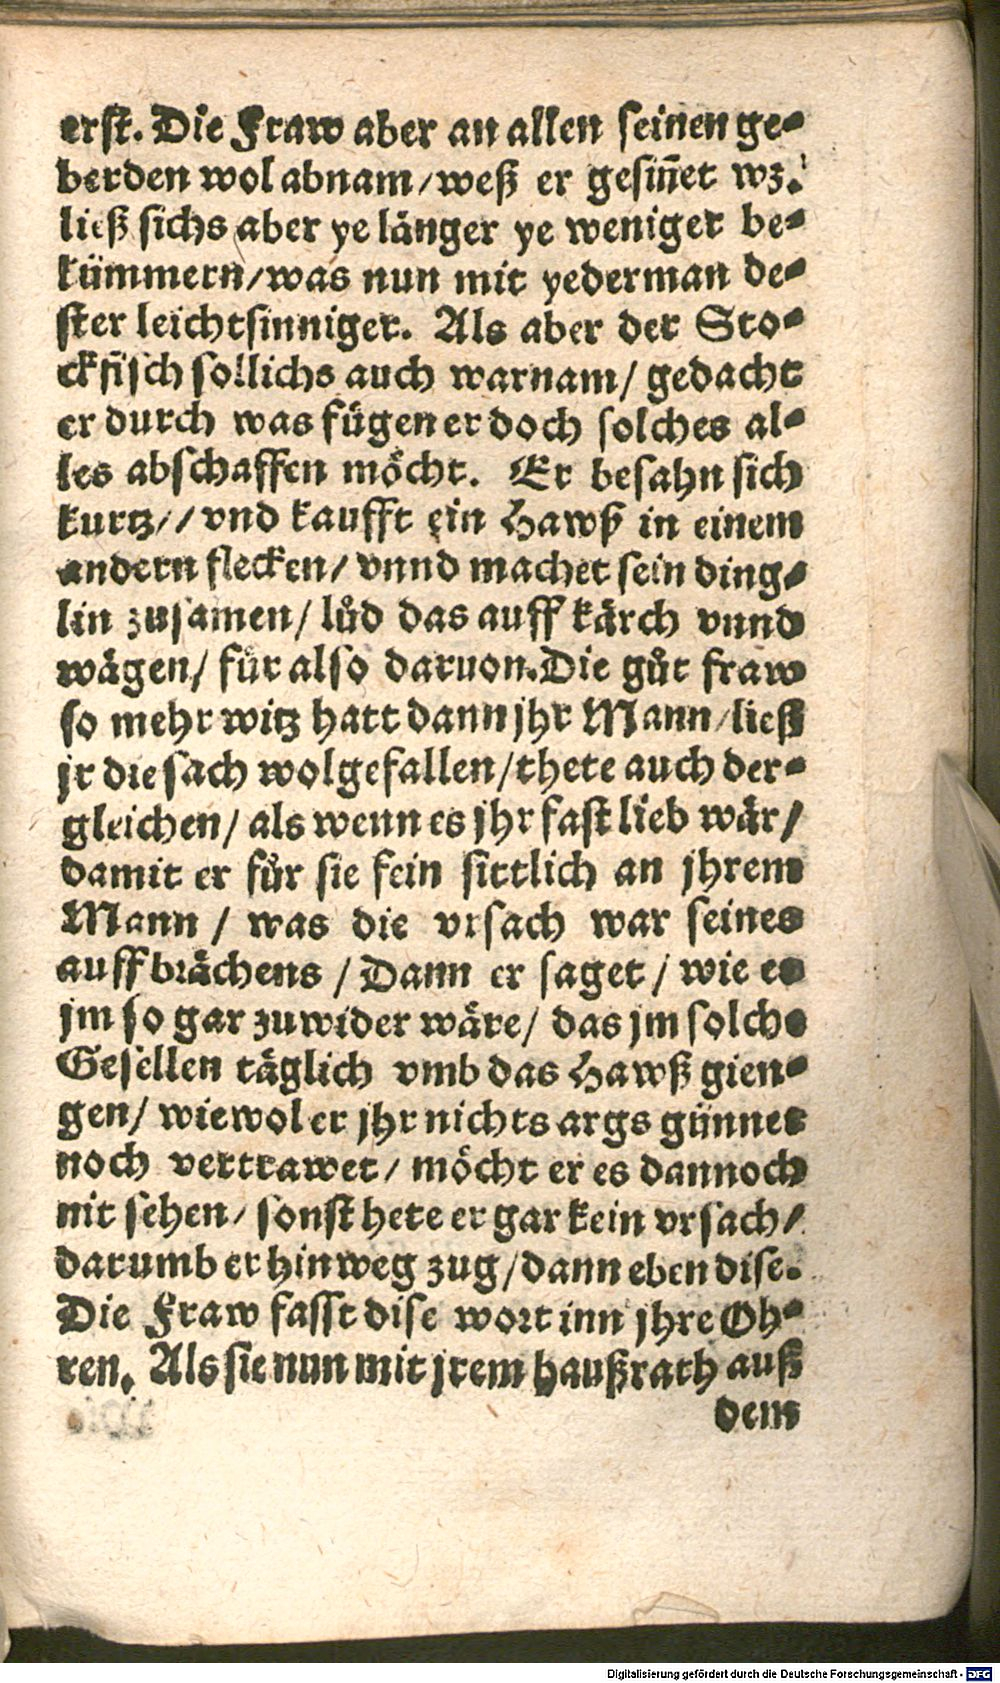 erst. Die Fraw aber an allen seinen ge-
berden wol abnam/weß er gesiñet wz.
ließ sichs aber ye länger ye weniger be-
kümmern/was nun mit yederman de-
ster leichtsinniger. Als aber der Sto-
ckfisch sollichs auch warnam/ gedacht
er durch was fügen er doch solches al-
les abschaffen möcht. Er besahn sich
kurtz//vnd kaufft ein Hawß in einem
andern flecken/ vnnd machet sein ding-
lin zusamen/ lůd das auff kärch vnnd
wägen/ fůr also daruon. Die gůt fraw
so mehr witz hatt dann jhr Mann/ließ
jr die sach wolgefallen/thete auch der-
gleichen/ als wenn es jhr fast lieb wär/
damit er fůr sie fein sittlich an jhrem
Mann/ was die vrsach war seines
auffbrächens/ Dann er saget/ wie es
jm so gar zuwider wäre/ das jm solche
Gesellen täglich vmb das Hawß gien-
gen/ wiewol er jhr nichts args günnet
noch vertrawet/ möcht er es dannoch
nit sehen/ sonst hete er gar kein vrsach/
darumb er hinweg zug/dann eben dise.
Die Fraw fasst dise wort inn jhre Oh-
ren. Als sie nun mit jrem haußrath auß
dem
Digitalisierung gefördert durch die Deutsche Forschungsgemeinschaft - DFG